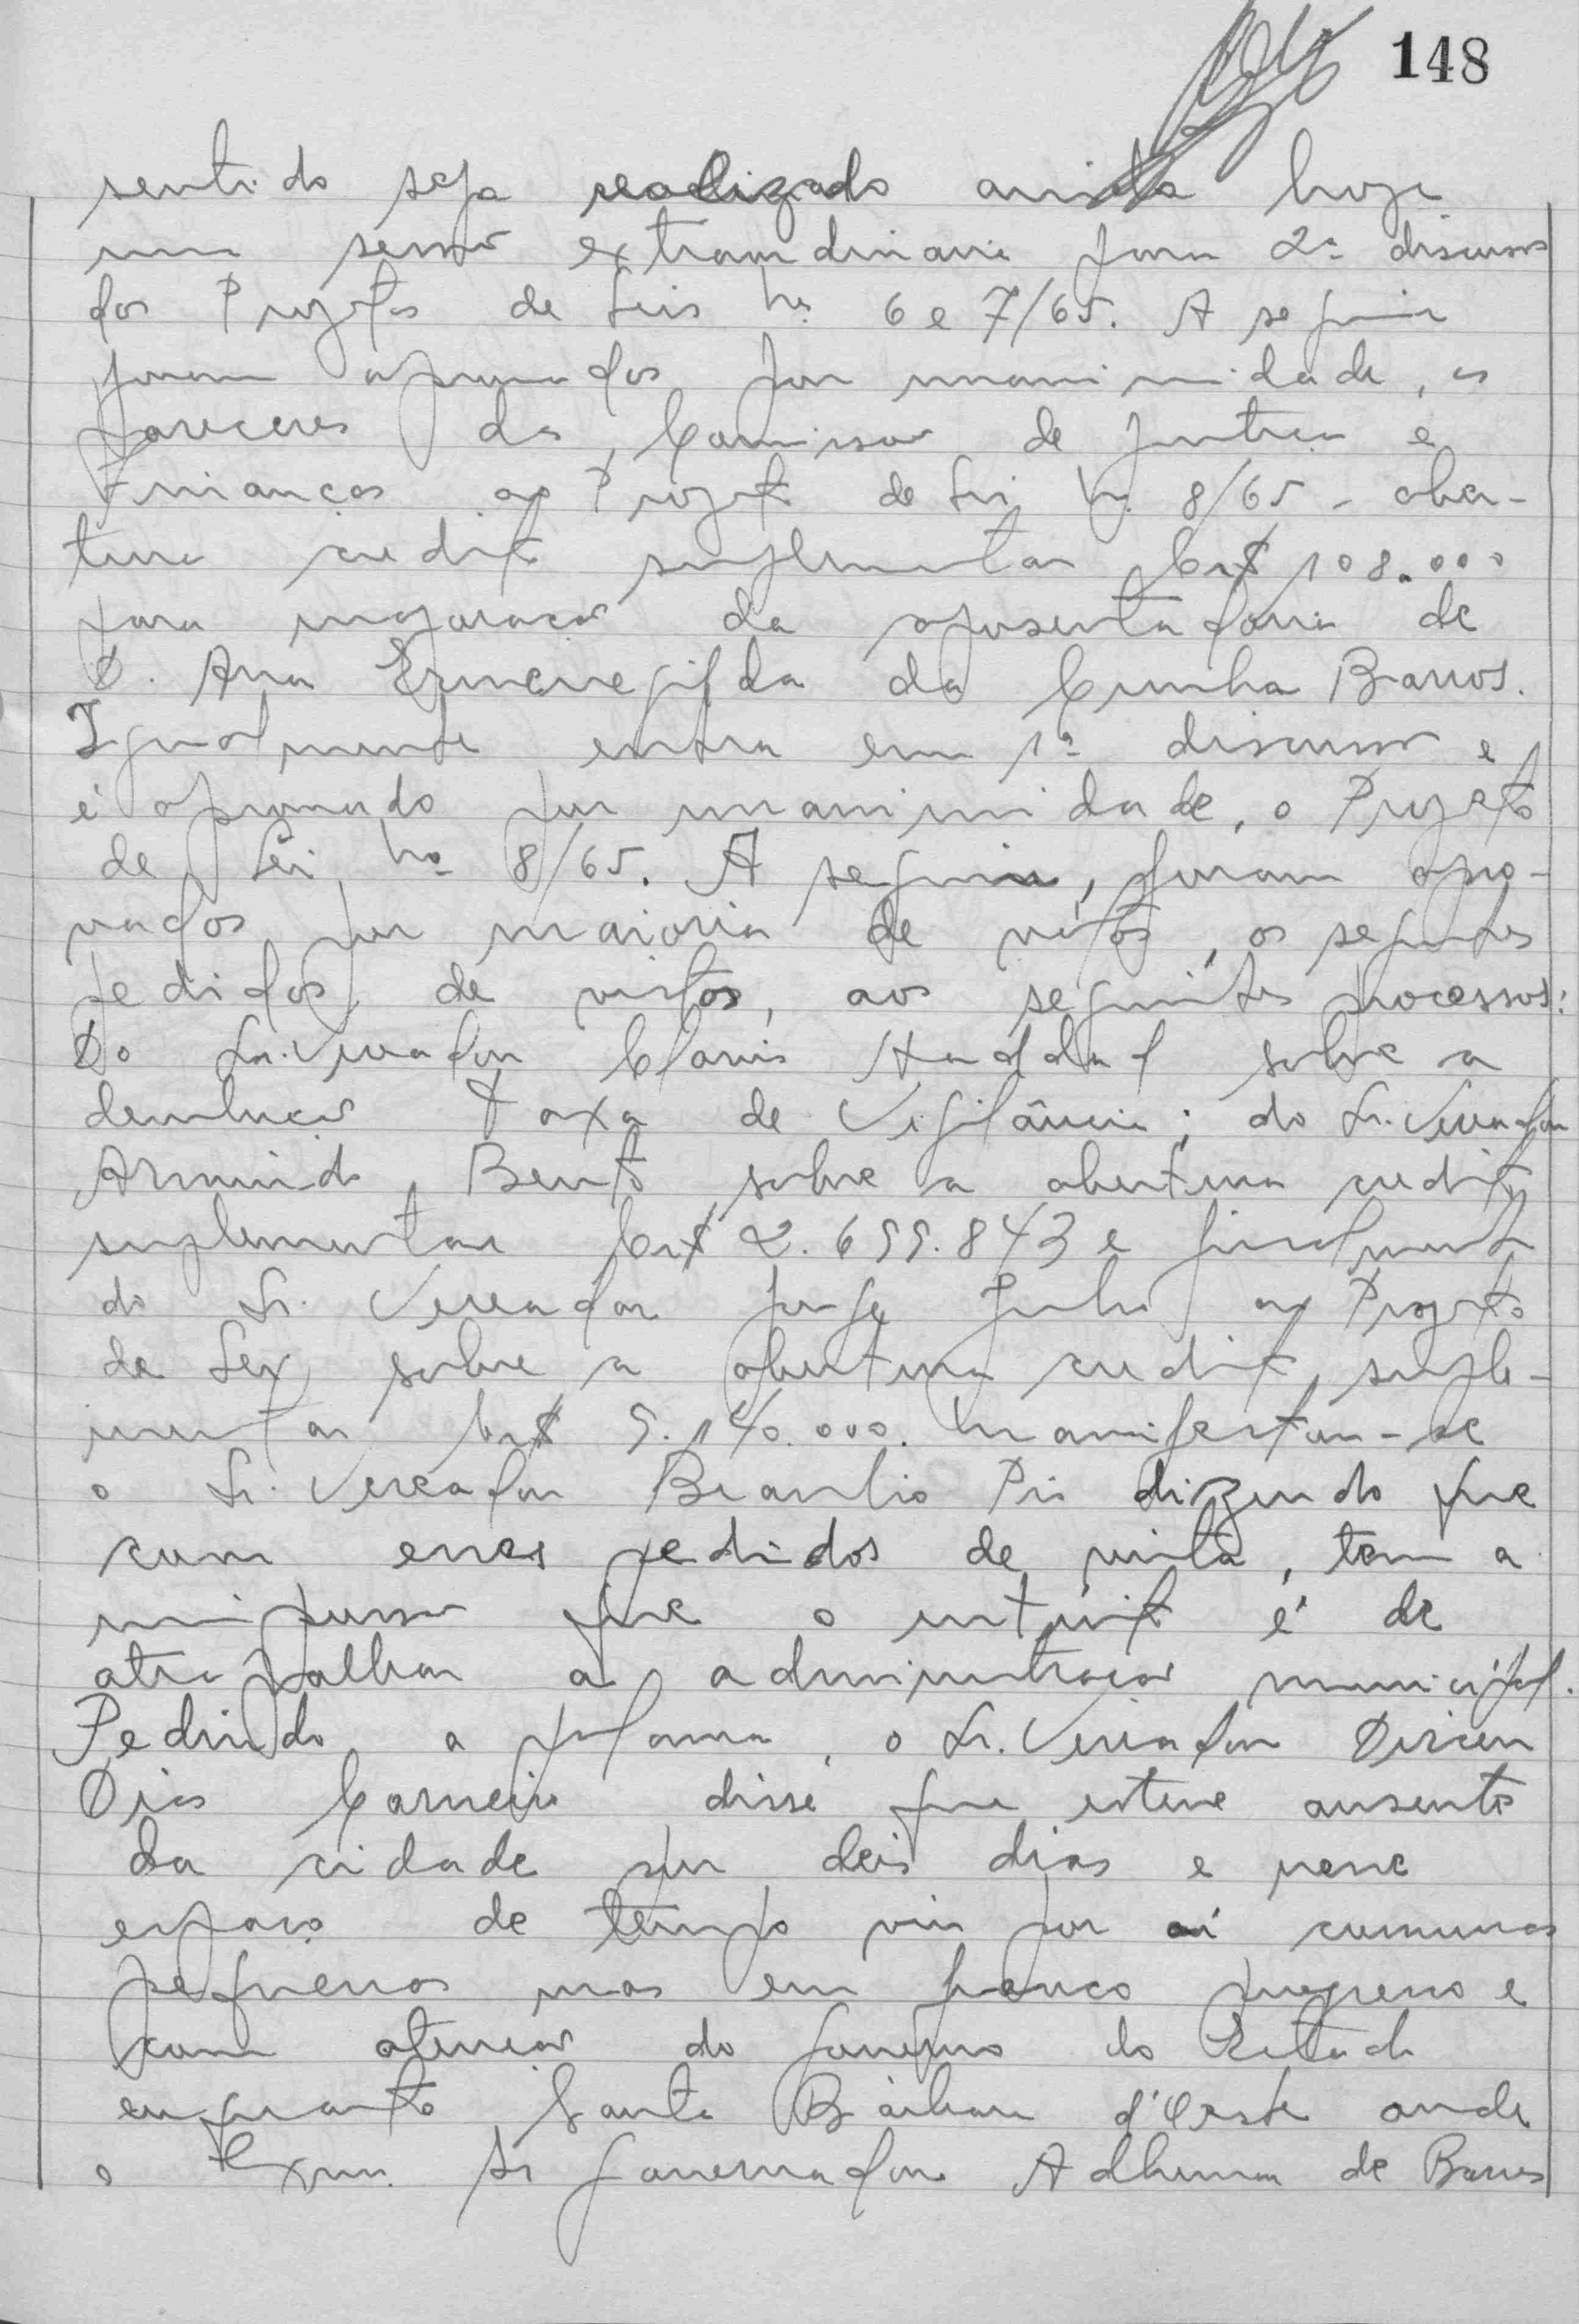 148
sentido seja realizado ainda hoje
uma sessão extraordinaria para 2ª discussão
dos Projetos de Leis nº 6 e 7/65. A seguir
foram aprovados por unanimidade, os
pareceres da Comissão de Justiça e
Finanças ao Projeto de Lei nº 8/65 - aber-
tura credito suplementar Cr$ 108.000
para majoração da aposentadoria de
D. Ana Ermenegilda da Cunha Barros.
Igualmente entra em 1ª discussão e
é aprovado por unanimidade, o Projeto
de Lei nº 8/65. A seguir, foram apro-
vados por maioria de votos, os seguintes
pedidos de vistas, aos seguintes processos:
Do Sr. Vereador Clovis Haddad sobre a
devolução taxa de Vigilância; do Sr. Vereador
Armindo Bento sobre a abertura credito
suplementar Cr$ 2.699.843 e finalmente
do Sr. Vereador Jorge Julio ao Projeto
de Lei sobre a abertura credito suple-
mentar Cr$ 9.140.000. Manifestou-se
o Sr. Vereador Braulio Pio dizendo que
com esses pedidos de vista, tem a
impressão que o intúito é de
atrapalhar a administração municipal.
Pedindo a palavra, o Sr. Vereador Dirceu
Dias Carneiro disse que esteve ausente
da cidade por dois dias e nesse
espaço de tempo viu por aí comunas
pequenas mas em franco progresso e
com atenção do governo do Estado
enquanto Santa Bárbara d'Oeste onde
o Exmo. Sr Governador Adhemar de Barros